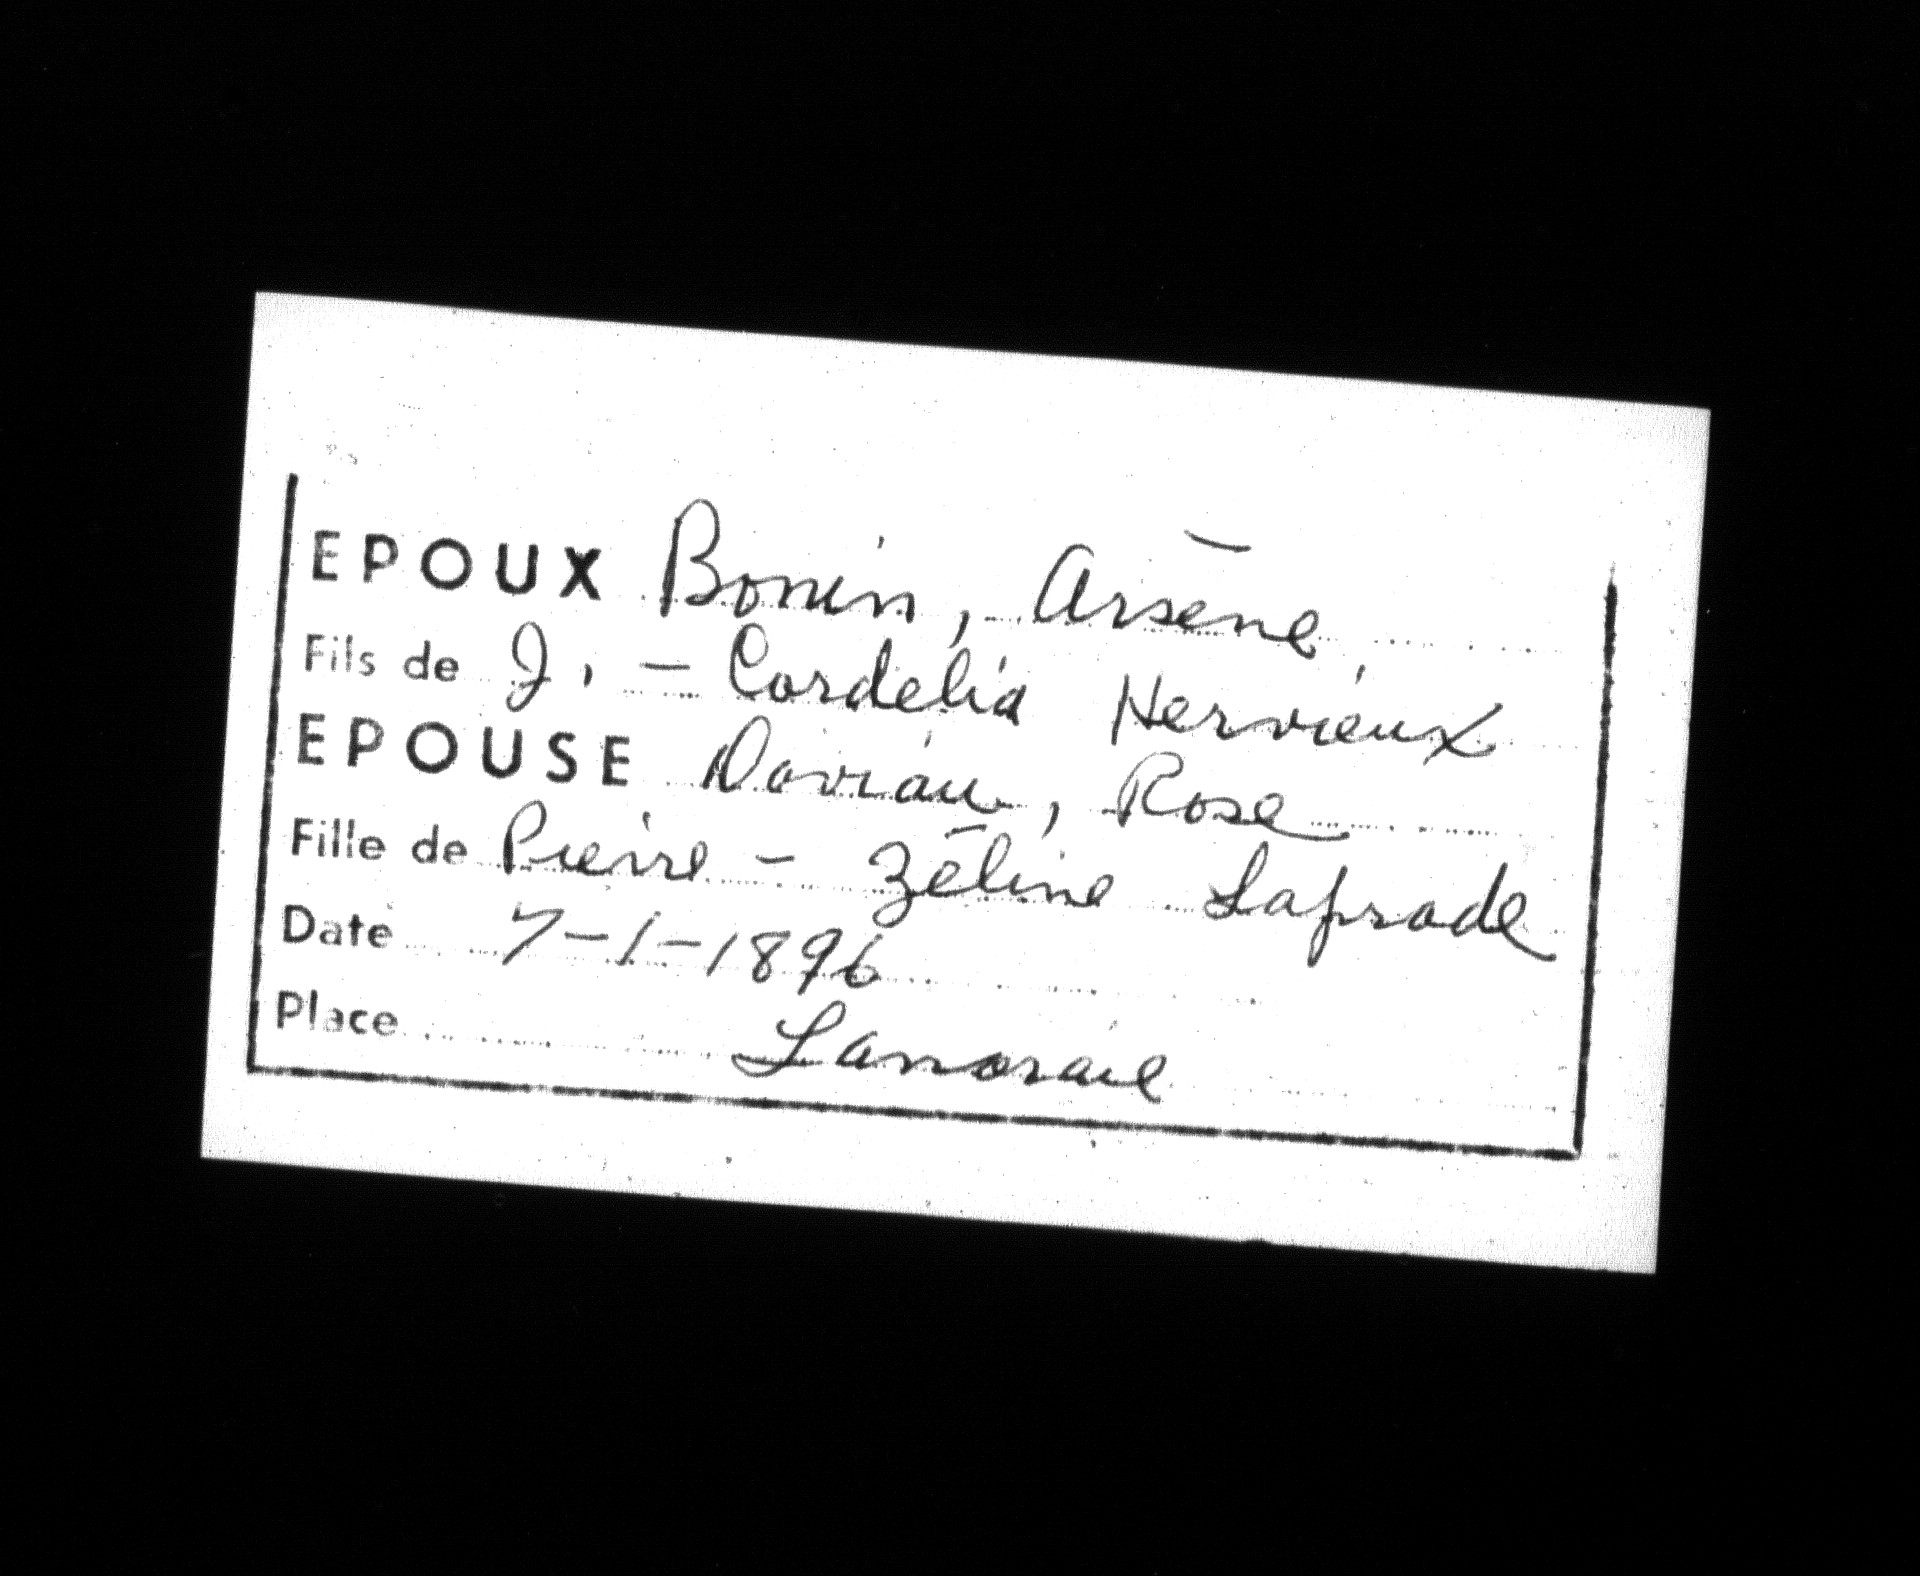 EPOUX Bonin, Arsène
Fils de J. - Cordelia Hervieux
EPOUSE Daviau, Rose
Fille de Pierre - Zéline Laprade
Date 7-1-1896
Place Lanoraie